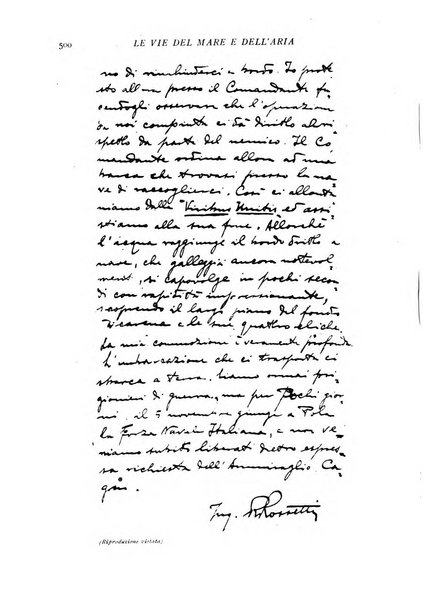 500 LE VIE DEL MARE E DELL'ARIA
no di rinchiuderci a bordo. Io prote-
sto allora presso il Comandante fa-
cendogli osservare che l'operazione
da noi compiuta ci dà diritto al ri-
spetto da parte del nemico. Il Co-
mandante ordina allora ad una
barca che trovasi presso la na-
ve di raccoglierci. Così ci allonta-
niamo dalla "Viribus Unitis" ed assi-
stiamo alla sua fine. Allorchè
l'acqua raggiunge il bordo dritto la
nave, che galleggia ancora notevol-
mente, si capovolge in pochi secon-
di con rapidità impressionante,
scoprendo il largo piano del fondo
di carena e le sue quattro eliche.
La mia commozione è veramente profonda.
L'imbarcazione che ci trasporta ci
sbarca a terra. Siamo ormai pri-
gionieri di guerra, ma per pochi gior-
ni. Il 5 novembre giunge a Pola
la Forza Navale Italiana, e noi ve-
niamo subito liberati dietro espres-
sa richiesta dell'Ammiraglio Ca-
gni.
Ing. R. Rossetti
(Riproduzione vietata)